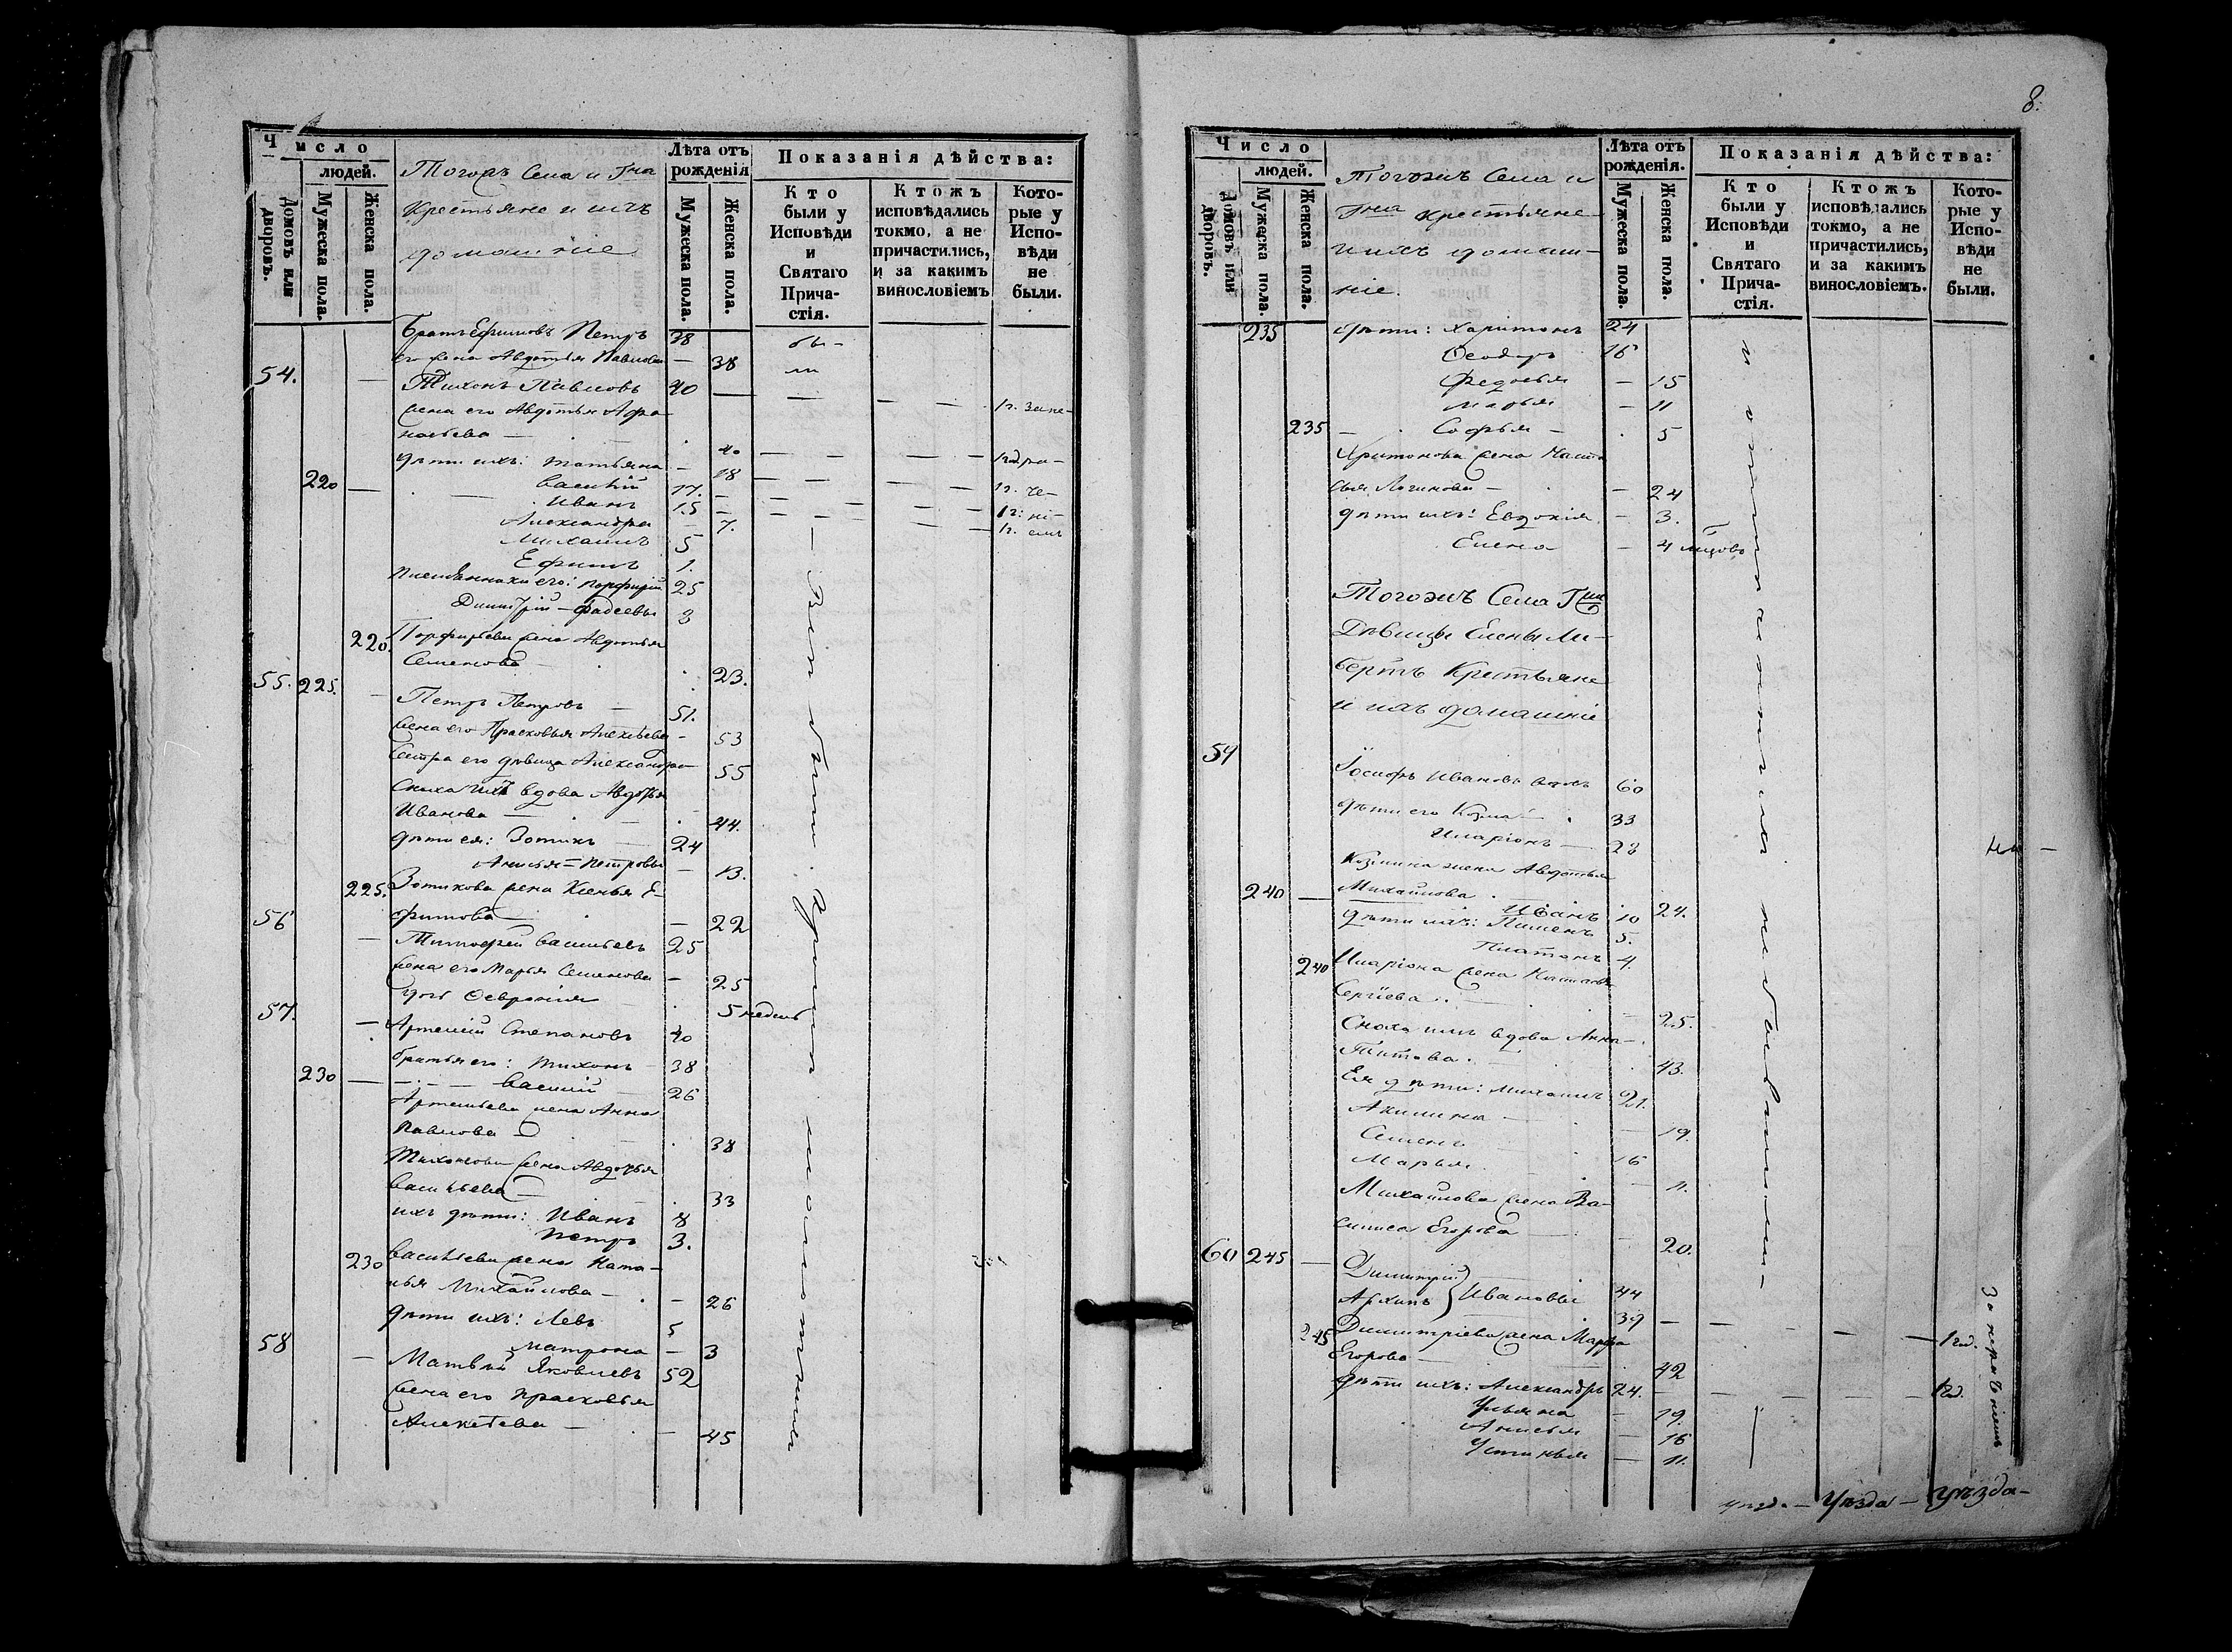 Число
людей.
Домовъ или дворовъ.
Мужеска пола.
Женска пола.
Тогожъ Села и Гна
Крестьяне и ихъ
домашніе
Лѣта отъ рожденія
Мужеска пола.
Женска пола.
Показанія дѣйства:
Кто были у Исповѣди и Святаго Причастія.
Ктожъ исповѣдались токмо, а не причастились, и за какимъ винословіемъ
Которые у Исповѣди не были.
Братъ Ефимовъ Петръ 38 бы-
его жена Авдотья Павлова — 38 ли
54. — Тихонъ Павловъ 40
жена его Авдотья Афа-
насьева — 40
дѣти ихъ: Татьяна — 18
220 — Василій 17.
Иванъ 15
Александра — 7.
Михаилъ 5
Ефимъ 1.
племянники его: Порфирій 25
Димитрій — Фадеевы 8
220. Порфирьева жена Авдотья
Семенова 23.
55. 225. — Петръ Петровъ — 51.
жена его Прасковья Алексѣева — 53
Сестра его дѣвица Александра 55
Сноха ихъ вдова Авдотья
Иванова — 44.
дѣти ея: Зотикъ — 24
Анисья — Петровы — 13.
225. Зотикова жена Ксенья Е-
фимова — 22
56 — Тимофей Васильевъ 25
жена его Марья Семенова — 25
дочь Февронія 5 недель
57. — Артемій Степановъ 40
братья его: Тихонъ 38
230 — Василій 26
Артемьева жена Анна
Павлова — 38
Тихонова жена Авдотья
Васильева — 33
ихъ дѣти: Иванъ 8
Петръ 3.
230 Васильева жена Ната-
лья Михайлова — 26
дѣти ихъ: Левъ 5
Матрона — 3
58 — Матвей Яковлевъ 52
жена его Прасковья
Алексѣева — 45
8.
Число
людей.
Домовъ или дворовъ.
Мужеска пола.
Женска пола.
Тогожъ Села и
Гна Крестьяне
и ихъ домаш-
ніе.
Лѣта отъ рожденія.
Мужеска пола.
Женска пола.
Показанія дѣйства:
Кто были у Исповѣди и Святаго Причастія.
Ктожъ исповѣдались токмо, а не причастились, и за какимъ винословіемъ.
Которые у Исповѣди не были.
235 дѣти: Харитонъ 24
Феодоръ 16
Федосья — 15
Марья — 11
235 — Софья — 5
Харитонова жена Наста
сья Логинова — 24
дѣти ихъ: Евдокія — 3.
Елена — 4 мѣсяцовъ
Тогожъ Села Гжи
Дѣвицы Елены Ли-
бертъ Крестьяне
и ихъ домашніе
59
Іосифъ Ивановъ вдовъ 60
дѣти его Козма — 33
Иларіонъ — 28
Козмина жена Авдотья
240 — Михайлова 24.
Иванъ 10
дѣти ихъ: Пименъ 5.
Платонъ 4.
240 Иларіона жена Наталья
Сергѣева — 25.
Сноха ихъ вдова Анна
Титова. 43.
Ея дѣти: Михаилъ 21.
Акилина — 19
Семенъ 16
Марья — 11.
Михайлова жена Ва-
силиса Егорова — 20.
60 245 — Димитрій
Архипъ } Ивановы 44
39 — 1 год.
245 Димитріева жена Марфа
Егорова — 42
дѣти ихъ: Александръ 24. — 1 год.
Ульяна — 19.
Анисья — 16
Устинья — 11.
за нерадѣніемъ
уѣзда — Уѣзда — Уѣзда —